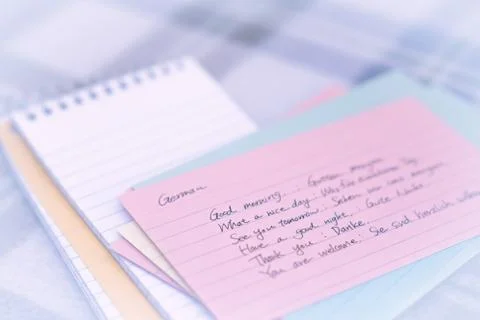 German
Good morning : Gutten morgen
What a nice day : Was für
See you tomorrow : Sehen wir uns morgen
Have a good night : Gute Nacht
Thank you : Danke
You are welcome : Sie sind herzlich